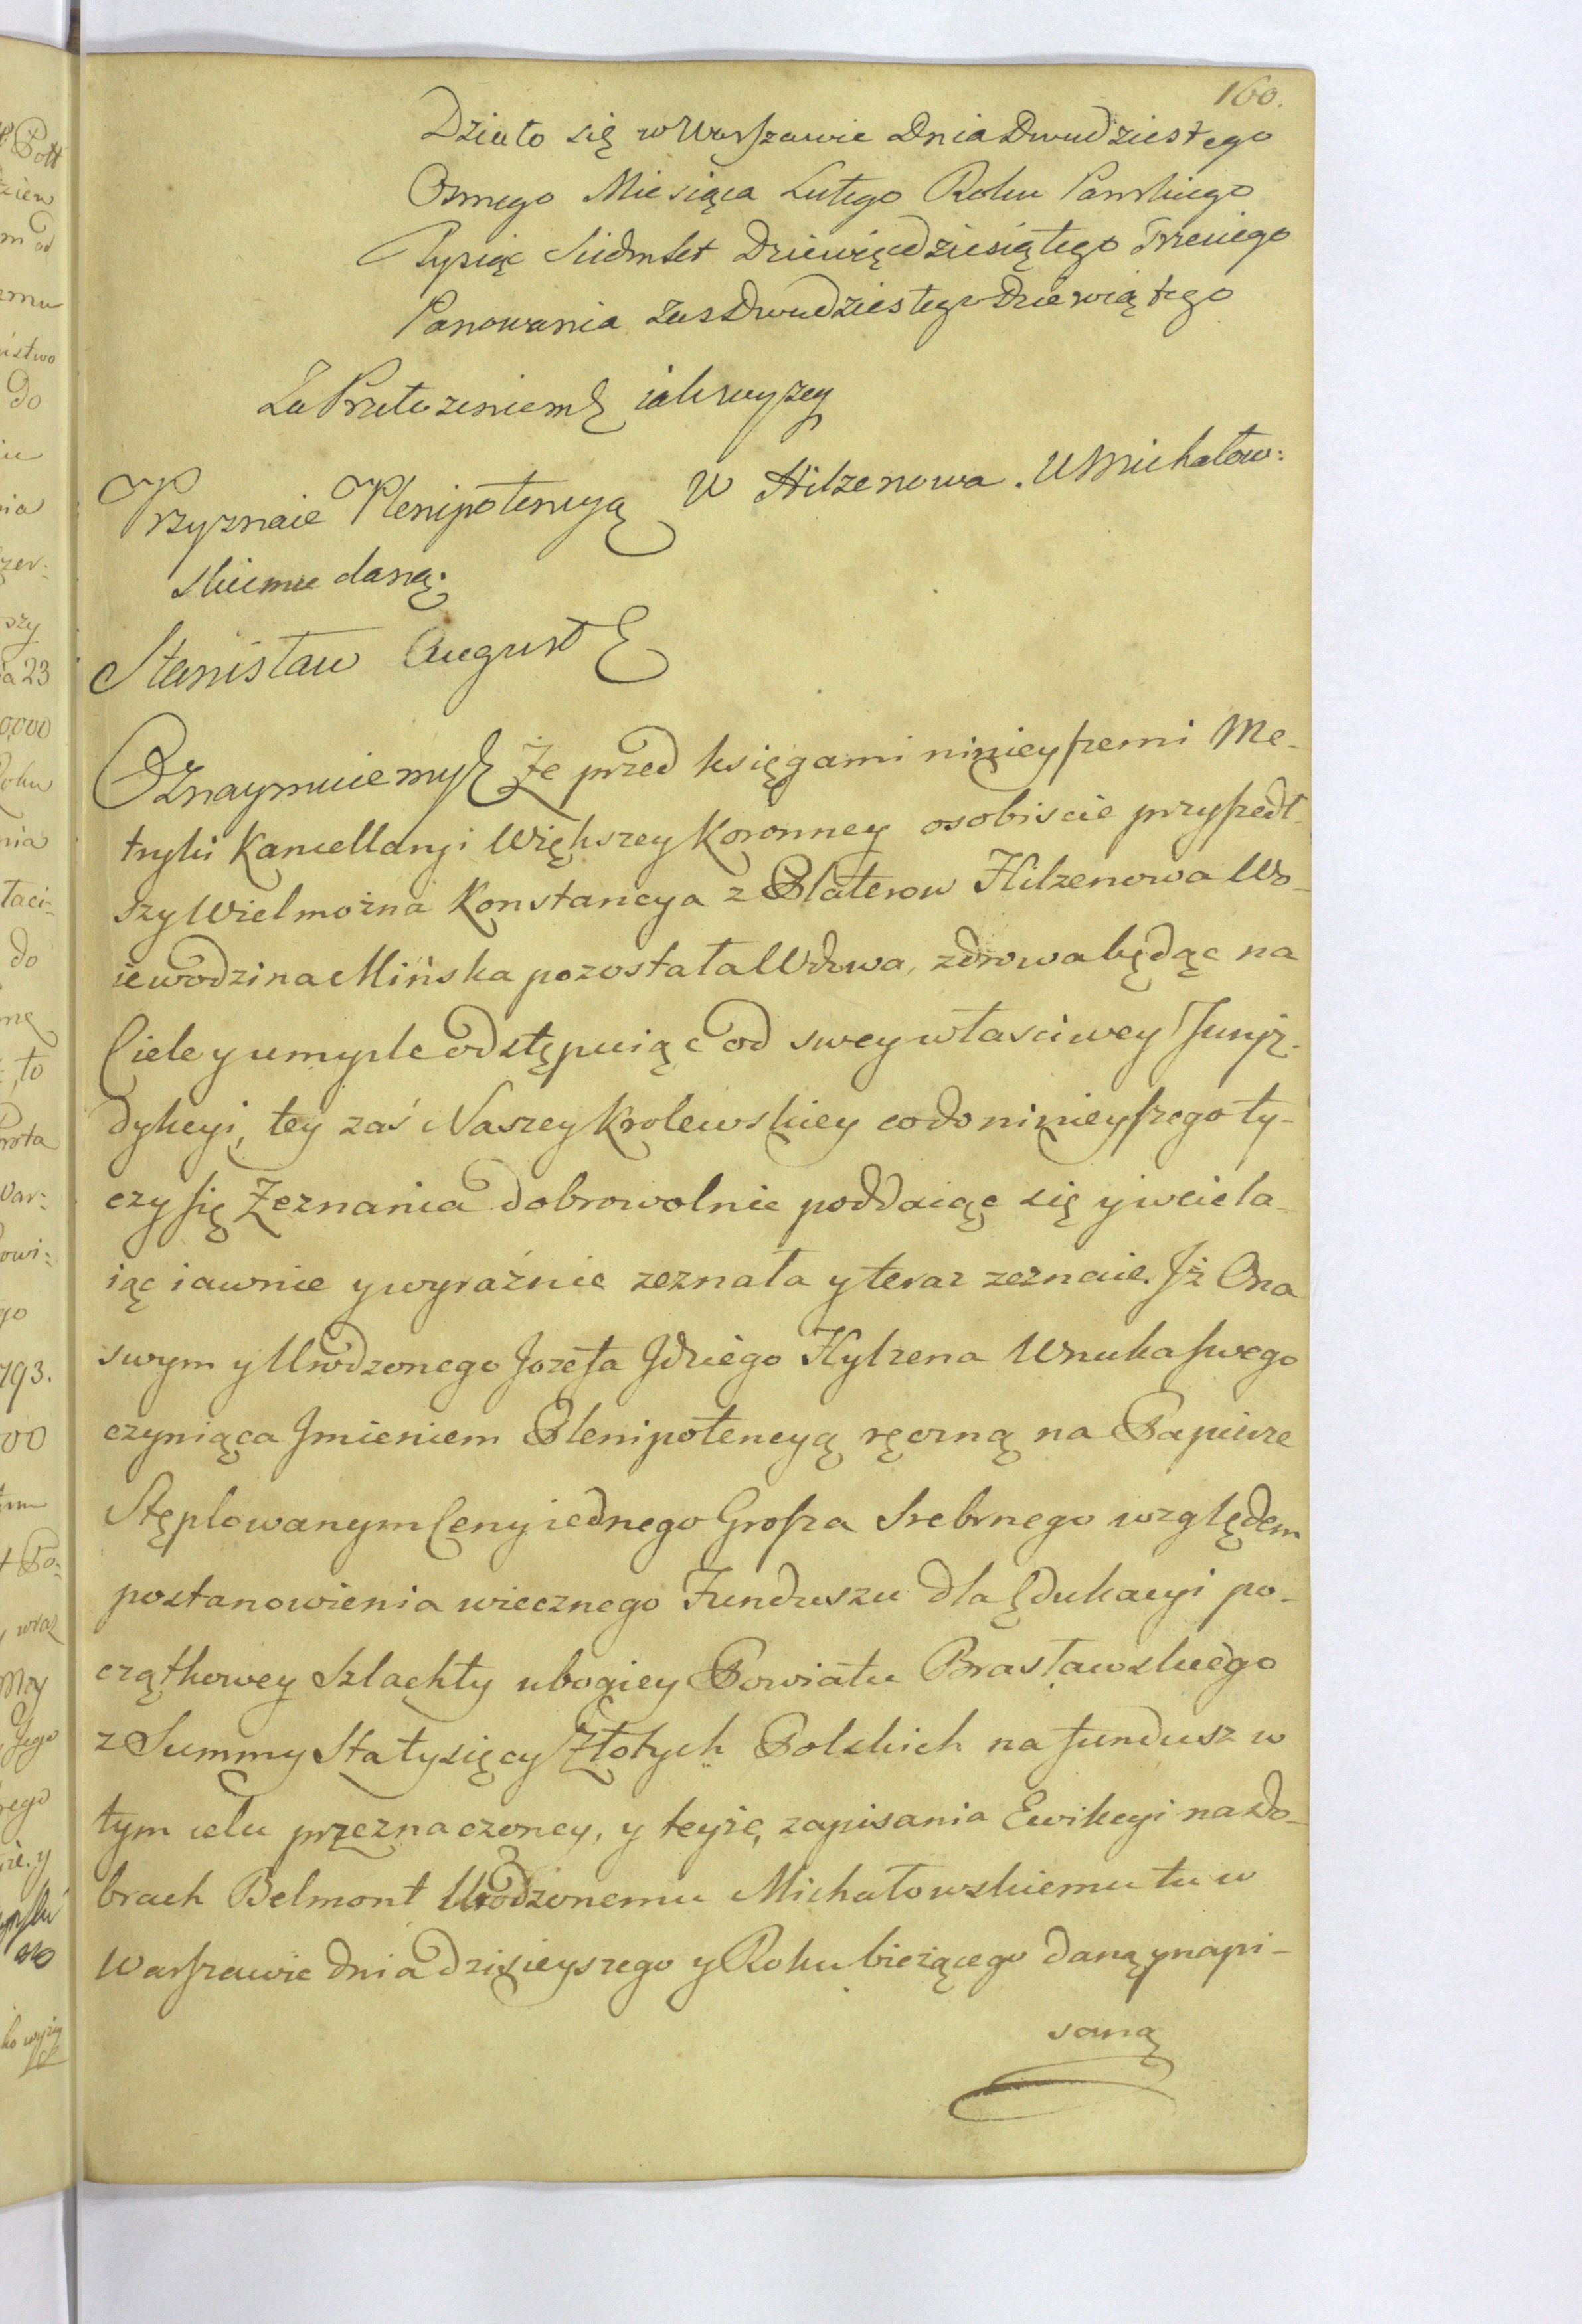 160.
Działo się w Warszawie Dnia Dwudziestego
Osmego Miesiąca Lutego Roku Pańskiego
Tysiąc Siedmset Dziewięćdziesiątego Trzeciego
Panowania Zas Dwudziestego Dziewiątego
Za Przełożeniem jak wyżey
Przyznaie Plenipotencyą W Hilzenowa. U Michałow:
skiemu daną.
Stanisław August
Oznaymuiemy Że przed księgami ninieyszemi Me-
tryki Kancellaryi Większey Koronney osobiscie przyszedł-
szy Wielmożna Konstancya z Platerow Hilzenowa Wo-
iewodzina Mińska pozostała Wdowa, zdrowa będąc na
Ciele y umysle odstępuiąc od swey własciwey Juryz-
dykcyi, tey zaś Naszey Krolewskiey co do ninieyszego ty-
czy się Zeznania dobrowolnie poddaiąc się y wciela-
iąc iawnie y wyraźnie zeznała y teraz zeznaie. Jż Ona
swym y Urodzonego Jozefa Jdziego Hylzena Wnuka swego
czyniąca Jmieniem Plenipotencyą ręczną na Papierze
Stęplowanym Ceny iednego Grosza Srebrnego względem
postanowienia wiecznego Funduszu dla Edukacyi po-
czątkowey Szlachty ubogiey Powiatu Brasławskiego
z Summy Sta tysięcy Złotych Polskich na fundusz w
tym celu przeznaczoney, y teyże, zapisania Ewikcyi na Do-
brach Belmont Urodzonemu Michałowskiemu tu w
Warszawie dnia dzisieyszego y Roku bieżącego daną y napi-
saną